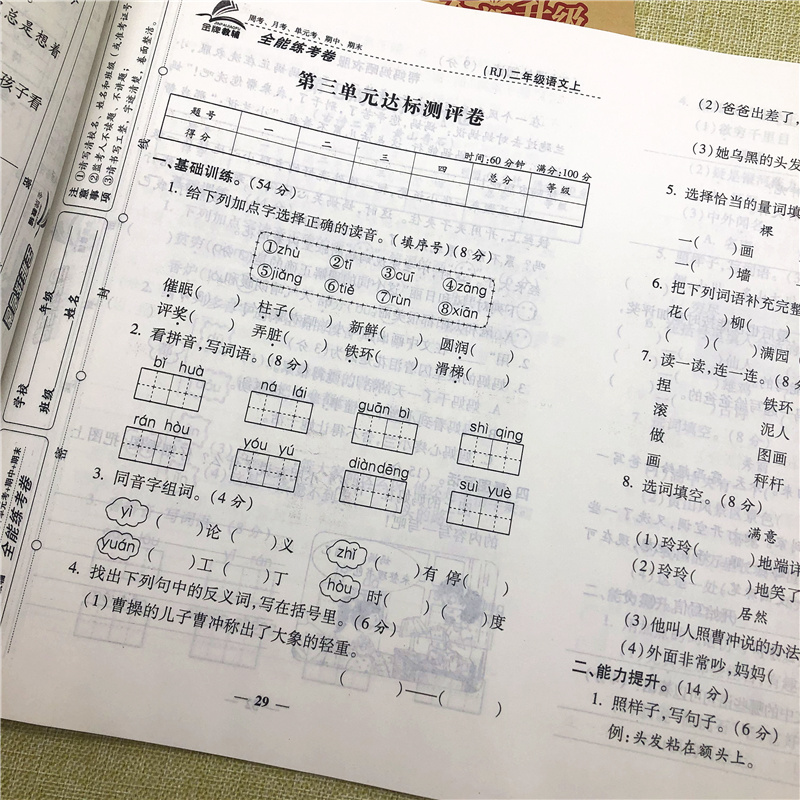 总是想着
孩子看
金牌教辅
周考、月考、单元考、期中、期末
全能练考卷
(RJ)二年级语文上
第三单元达标测评卷
题号 一 二 三 四 总分 等级
得分
时间:60分钟 满分:100分
注意事项
①请写清校名、姓名和班级(或准考证号
②监考人不读题,不讲题;
③请书写工整、字迹清楚,卷面整洁。
线
封
密
学校
年级
班级
姓名
单元考+期中+期末
全能练考卷
一、基础训练。(54分)
1. 给下列加点字选择正确的读音。(填序号)(8分)
①zhù ②tī ③cuī ④zāng
⑤jiǎng ⑥tiě ⑦rùn ⑧xiān
催眠( ) 柱子( ) 新鲜( ) 圆润( )
评奖( ) 弄脏( ) 铁环( ) 滑梯( )
2. 看拼音,写词语。(8分)
bǐ huà ná lái guān bì shì qing
rán hòu yóu yú diàndēng suì yuè
3. 同音字组词。(4分)
yì ( )论 ( )义 zhǐ ( )有 停( )
yuán ( )工 ( )丁 hòu 时( ) ( )度
4. 找出下列句中的反义词,写在括号里。(6分)
(1)曹操的儿子曹冲称出了大象的轻重。
( )——( )
— 29 —
(2)爸爸出差了,
(3)她乌黑的头发
5. 选择恰当的量词填
棵
一( )画
一( )墙
6. 把下列词语补充完整
花( )柳( )
( )( )满园
7. 读一读,连一连。(8分
捏 铁环
滚 泥人
做 图画
画 秤杆
8. 选词填空。(8分)
满意
(1)玲玲( )地端详
(2)玲玲( )地笑了
居然
(3)他叫人照曹冲说的办法
(4)外面非常吵,妈妈(
二、能力提升。(14分)
1. 照样子,写句子。(6分)
例:头发粘在额头上。